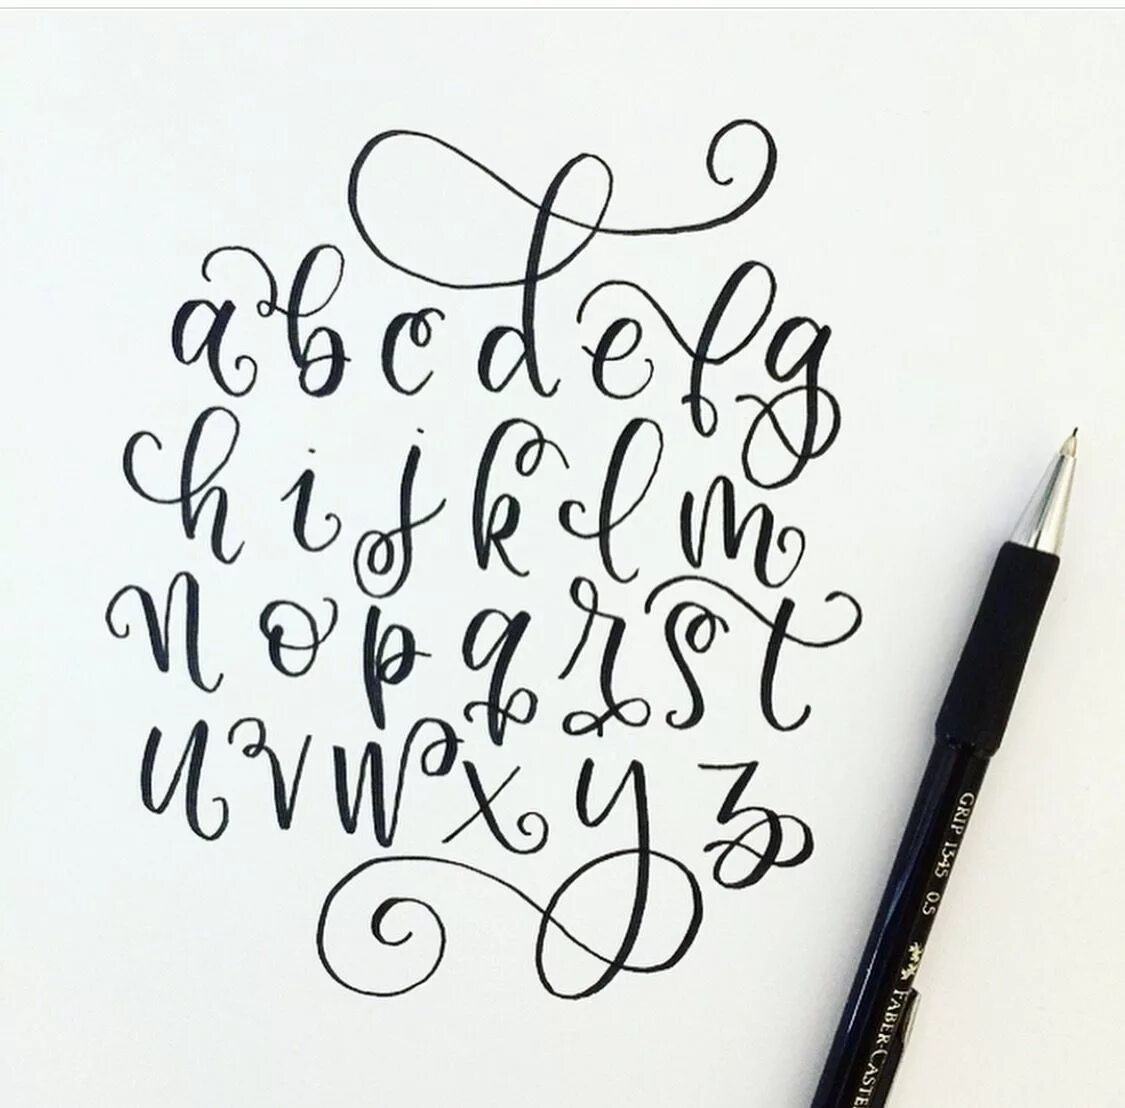 abcdefg
hijklm
nopqrst
uvwxyz
GRIP 1345 0.5 FABER-CASTE